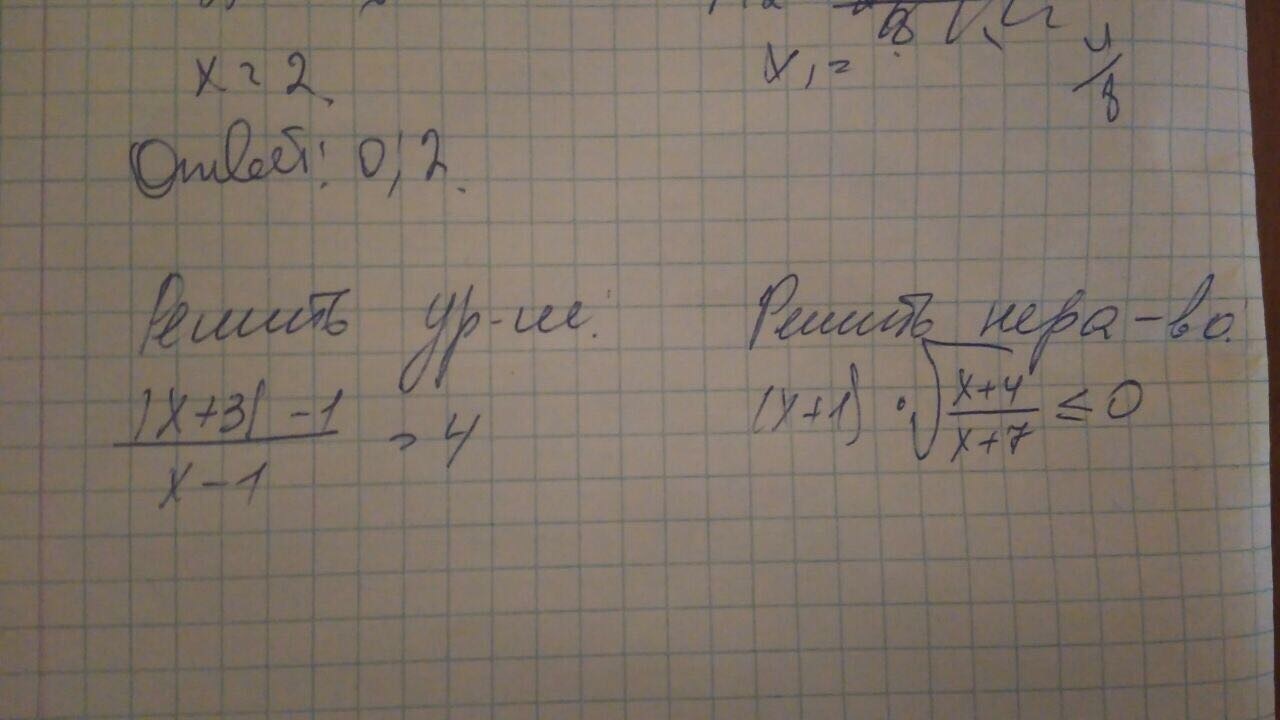 x = 2
Ответ: 0; 2.
x₁ =
8
Решить ур-ие:
(|x+3| - 1)/(x - 1) = 4
Решить нера-во:
(x+1) · √((x+4)/(x+7)) ≤ 0